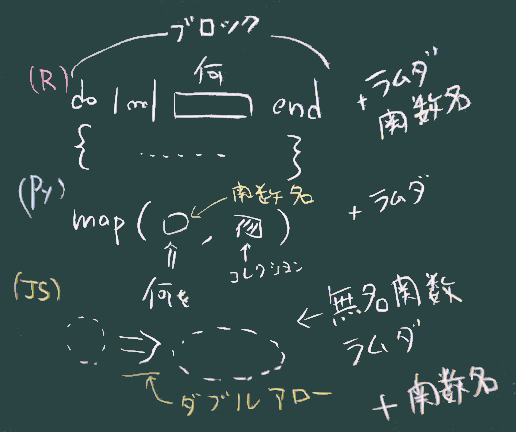 ブロック
(R) do |m| 何 end + ラムダ
関数名
{ ...... }
(Py) 関数名
map ( ○ , 物 ) + ラムダ
何を コレクション
(JS) ← 無名関数
⇒ ラムダ
ダブルアロー + 関数名